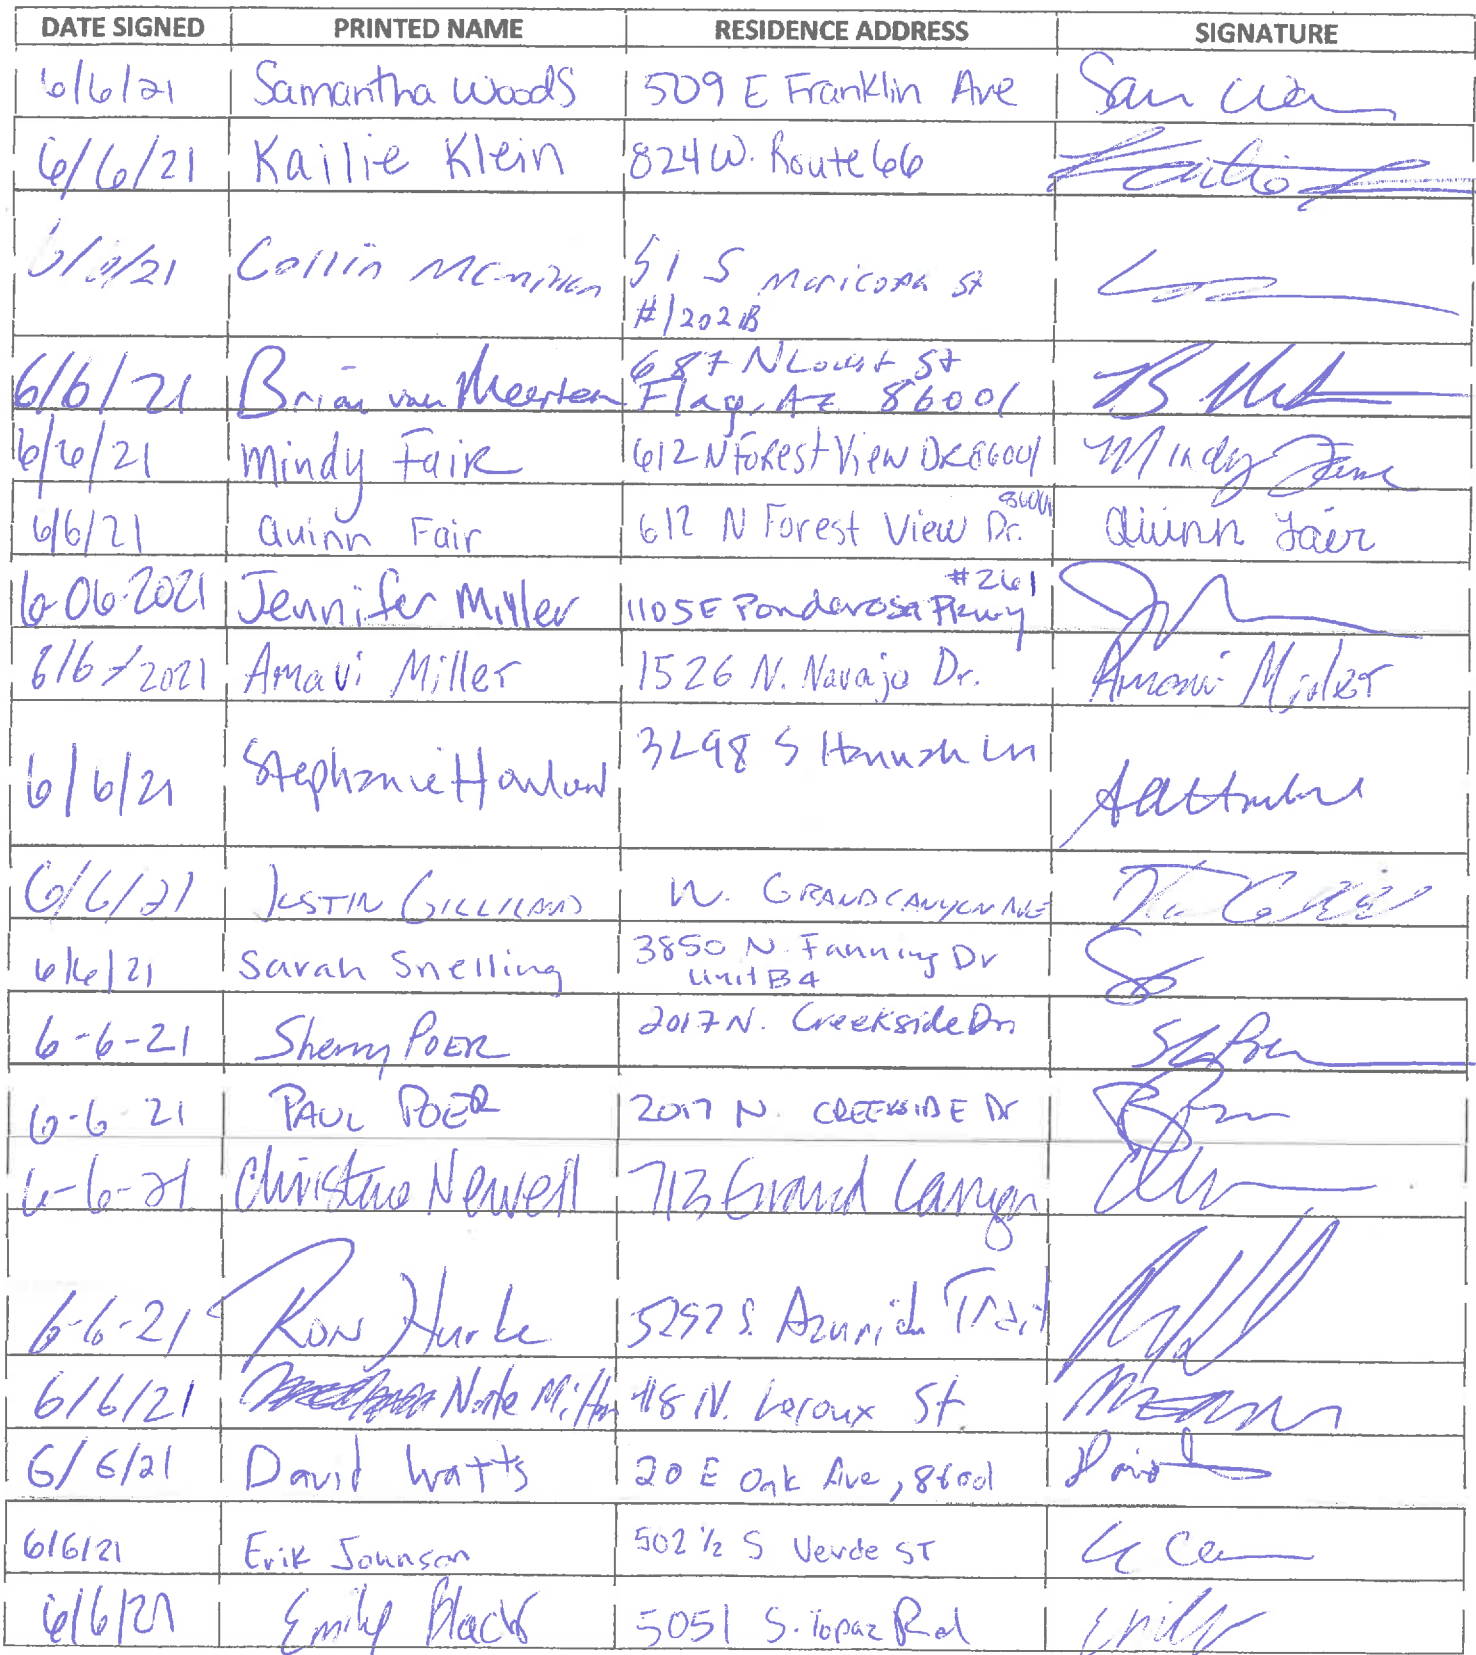 DATE SIGNED PRINTED NAME RESIDENCE ADDRESS SIGNATURE
6/6/21 Samantha Woods 509 E Franklin Ave
6/6/21 Kailie Klein 824 W. Route 66
6/6/21 Collin 51 S Maricopa St
#1202B
6/6/21 Brian van Meerten 687 N Locust St
Flag, AZ 86001
6/6/21 Mindy Fair 612 N Forest View Dr 86001 Mindy
86001
6/6/21 Quinn Fair 612 N Forest View Dr. Quinn Fair
#261
6-06-2021 Jennifer Miller 1105 E Ponderosa Pkwy
6/6/2021 Amavi Miller 1526 N. Navajo Dr. Amavi Miller
6/6/21 Stephanie 3298 S Hannah Ln
6/6/21 JUSTIN GILLILAND W. GRAND CANYON AVE
6/6/21 Sarah Snelling 3850 N. Fanning Dr
Unit B4
6-6-21 Sherry POER 2017 N. Creekside Dr
6-6 21 PAUL POER 2017 N CREEKSIDE Dr
6-6-21 Newell 713 Grand Canyon
6-6-21 RON 5252 S. Trail
6/6/21 Nate N. Leroux St.
6/6/21 David Watts 20 E Oak Ave, 86001 David
6/6/21 Erik Johnson 502 ½ S Verde ST
6/6/21 Emily 5051 S. Topaz Rd